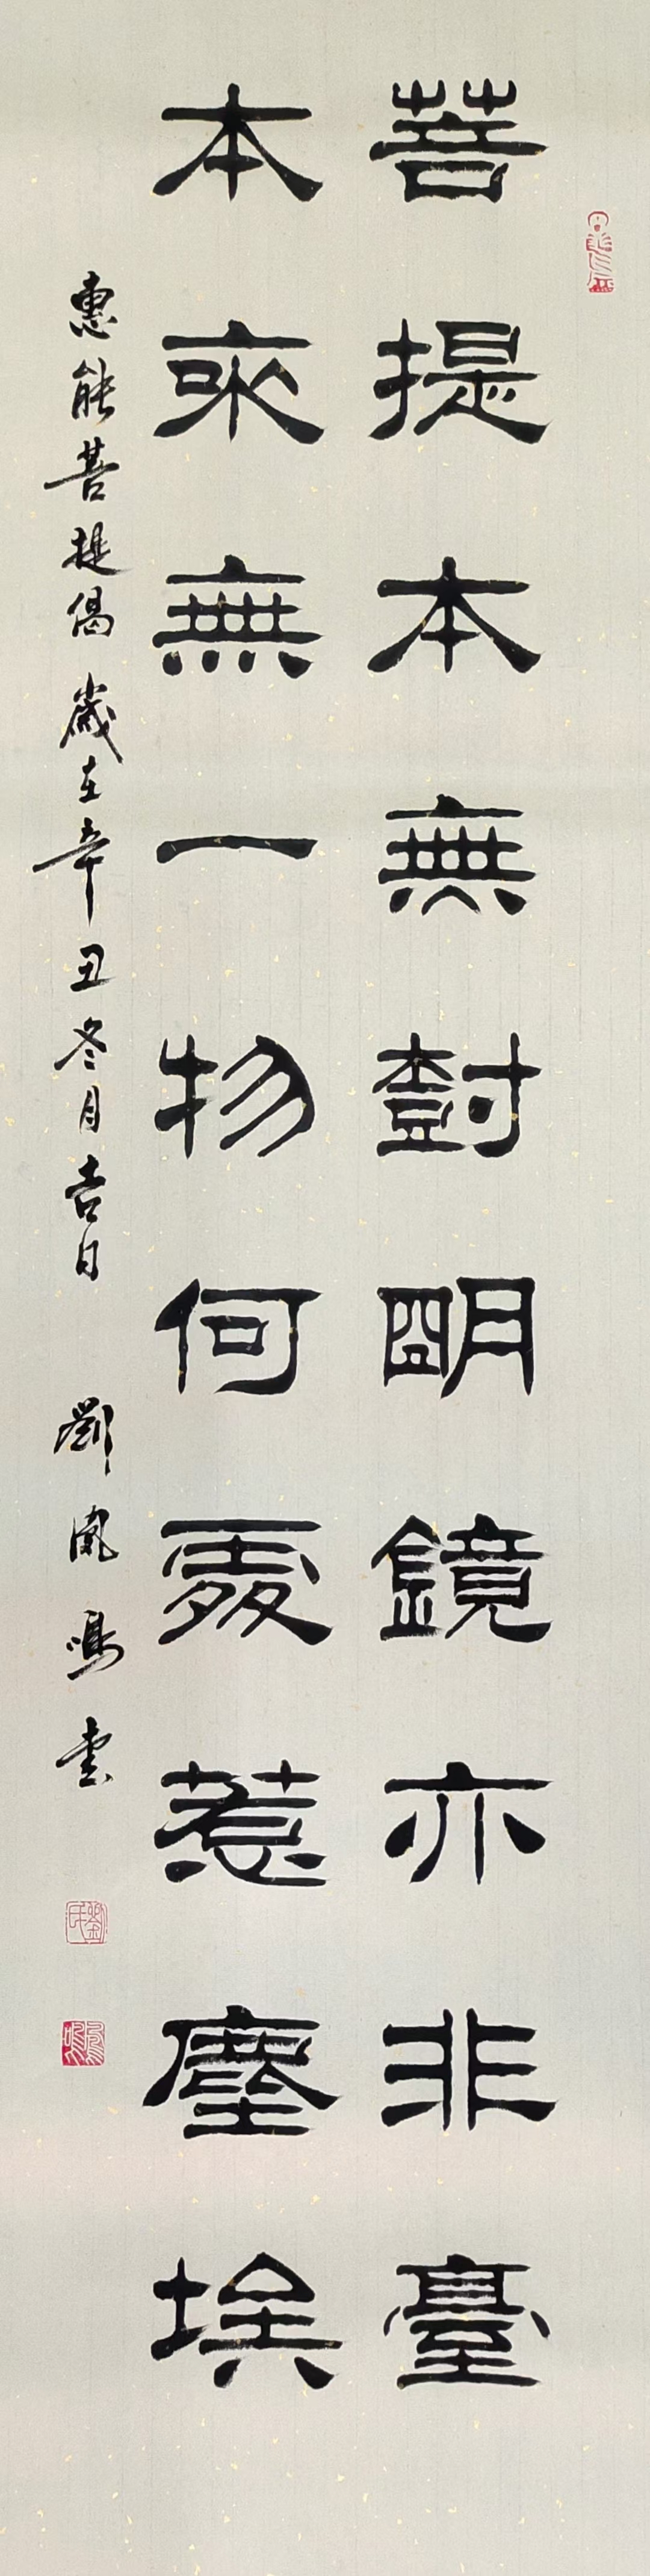 菩提本無樹明鏡亦非臺
本來無一物何處惹塵埃
惠能菩提偈 歲在辛丑冬月吉日 劉鳳鳴書
劉氏
鳳鳴